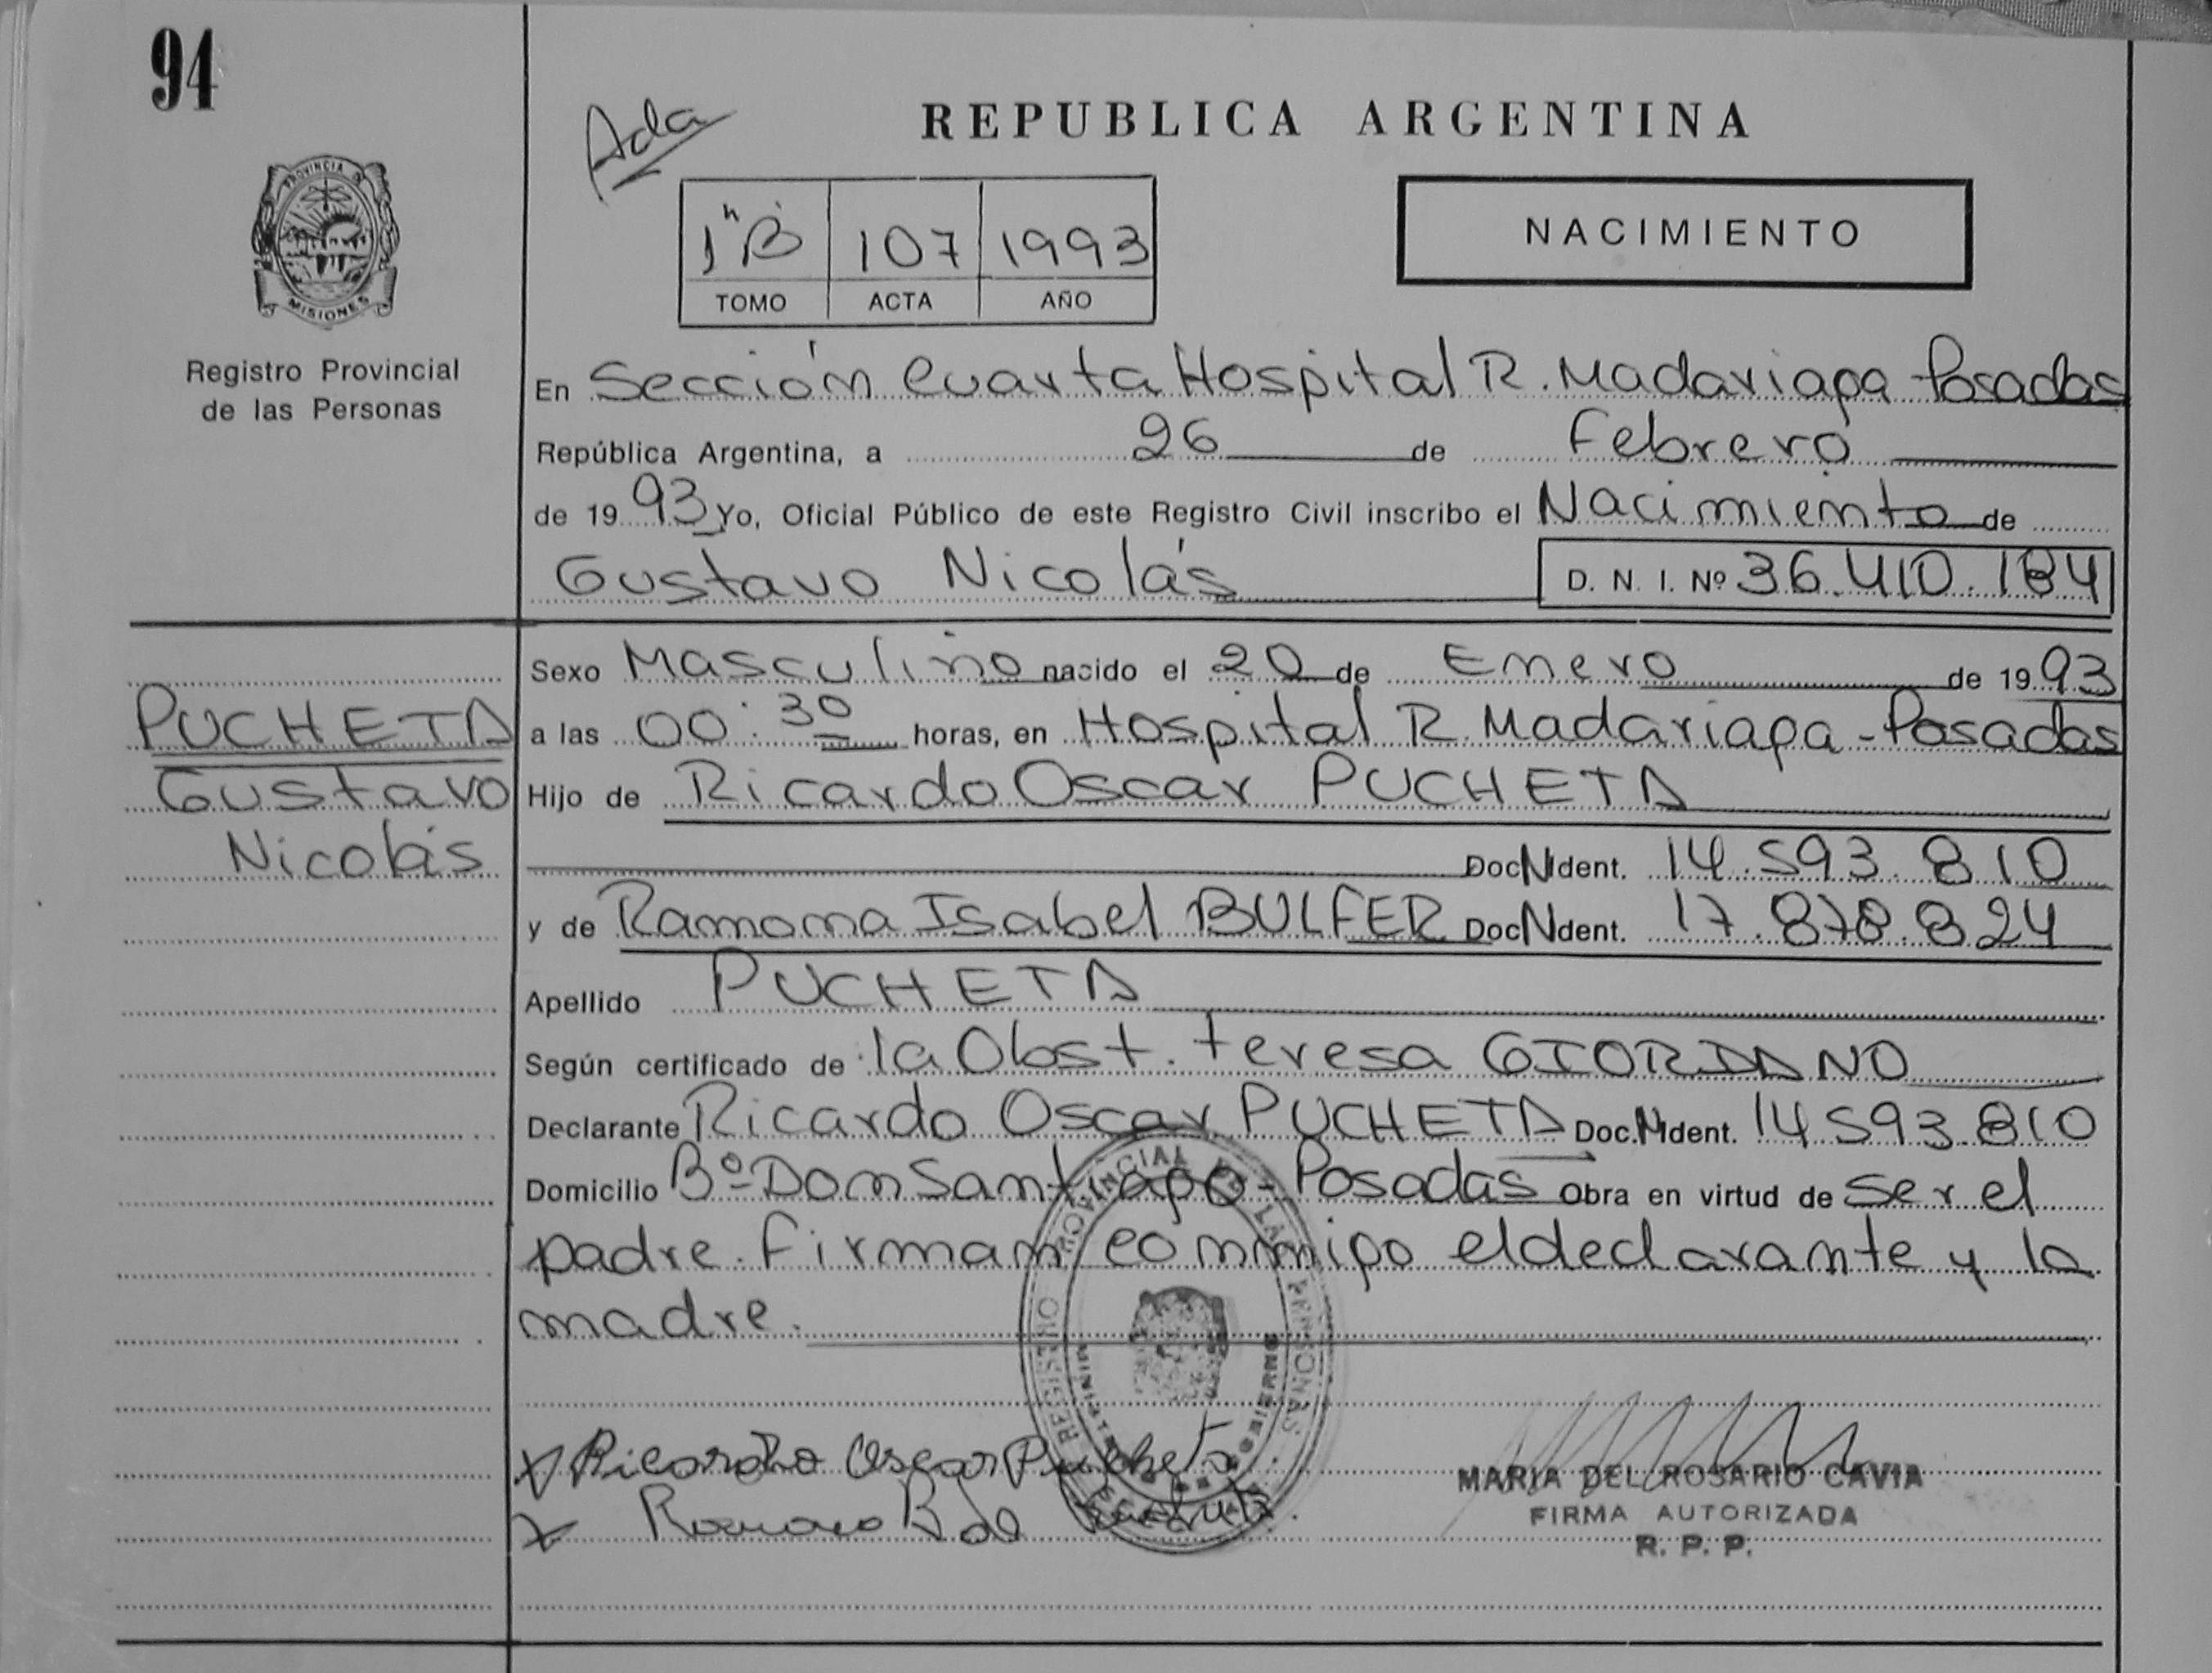 94
Ada
REPUBLICA ARGENTINA
PROVINCIA DE
MISIONES
Registro Provincial
de las Personas
1"B 107 1993
TOMO ACTA AÑO
NACIMIENTO
En Sección Cuarta Hospital R. Madariaga - Posadas
República Argentina, a 26 de Febrero
de 1993 Yo, Oficial Público de este Registro Civil inscribo el Nacimiento de
Gustavo Nicolás D. N. I. Nº 36.410.184
PUCHETA
Gustavo
Nicolás
Sexo Masculino nacido el 20 de Enero de 1993
a las 00:30 horas, en Hospital R. Madariaga - Posadas
Hijo de Ricardo Oscar PUCHETA
Doc N Ident. 14.593.810
y de Ramona Isabel BULFER Doc N Ident. 17.878.824
Apellido PUCHETA
Según certificado de la Obst. Teresa GIORDANO
Declarante Ricardo Oscar PUCHETA Doc. N Ident. 14.593.810
Domicilio Bº Don Santiago - Posadas Obra en virtud de ser el
padre. Firman conmigo el declarante y la
madre.
REGISTRO PROVINCIAL DE LAS PERSONAS
Ricardo Oscar Pucheta
Ramona B de Pucheta.
MARIA DEL ROSARIO CAVIA
FIRMA AUTORIZADA
R. P. P.